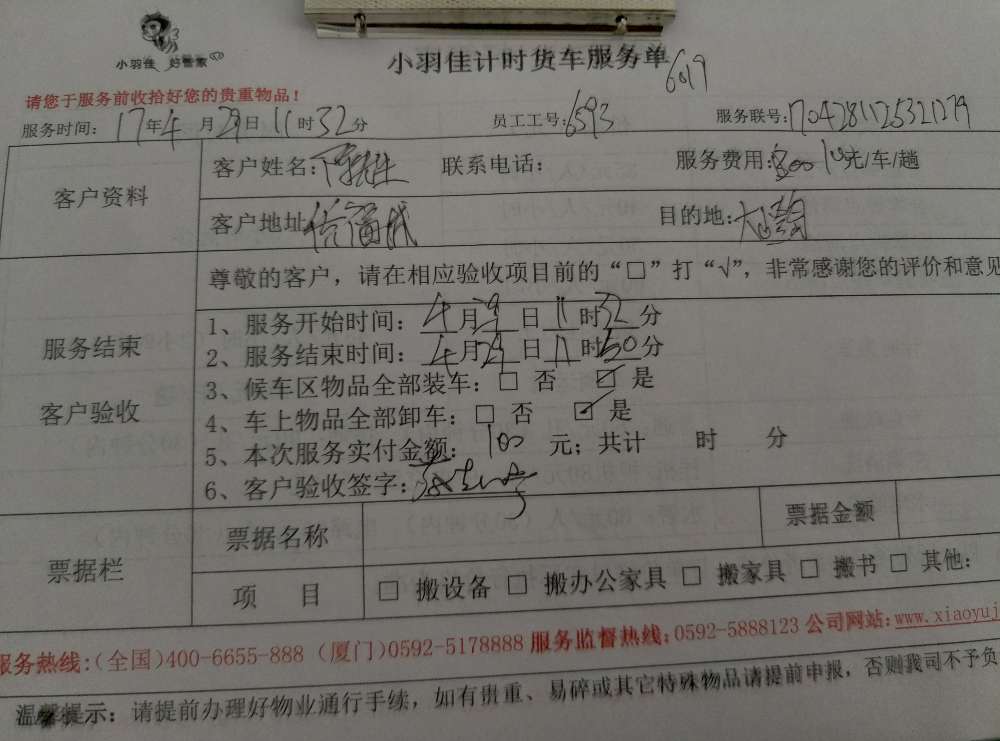 小羽佳 好管家
小羽佳计时货车服务单
6019
请您于服务前收拾好您的贵重物品！
服务时间：17年4月29日11时32分 员工工号：6593 服务联号：
客户资料
客户姓名： 联系电话： 服务费用： 元/车/趟
客户地址 目的地：
尊敬的客户，请在相应验收项目前的“□”打“√”，非常感谢您的评价和意见
服务结束
客户验收
1、服务开始时间：4月29日11时32分
2、服务结束时间：4月29日11时50分
3、候车区物品全部装车：□ 否 ☑ 是
4、车上物品全部卸车：□ 否 ☑ 是
5、本次服务实付金额：100元；共计 时 分
6、客户验收签字：
票据栏
票据名称 票据金额
项 目 □ 搬设备 □ 搬办公家具 □ 搬家具 □ 搬书 □ 其他：
服务热线：(全国)400-6655-888 (厦门)0592-5178888 服务监督热线：0592-5888123 公司网站：www.xiaoyuj
温馨提示：请提前办理好物业通行手续，如有贵重、易碎或其它特殊物品请提前申报，否则我司不予负